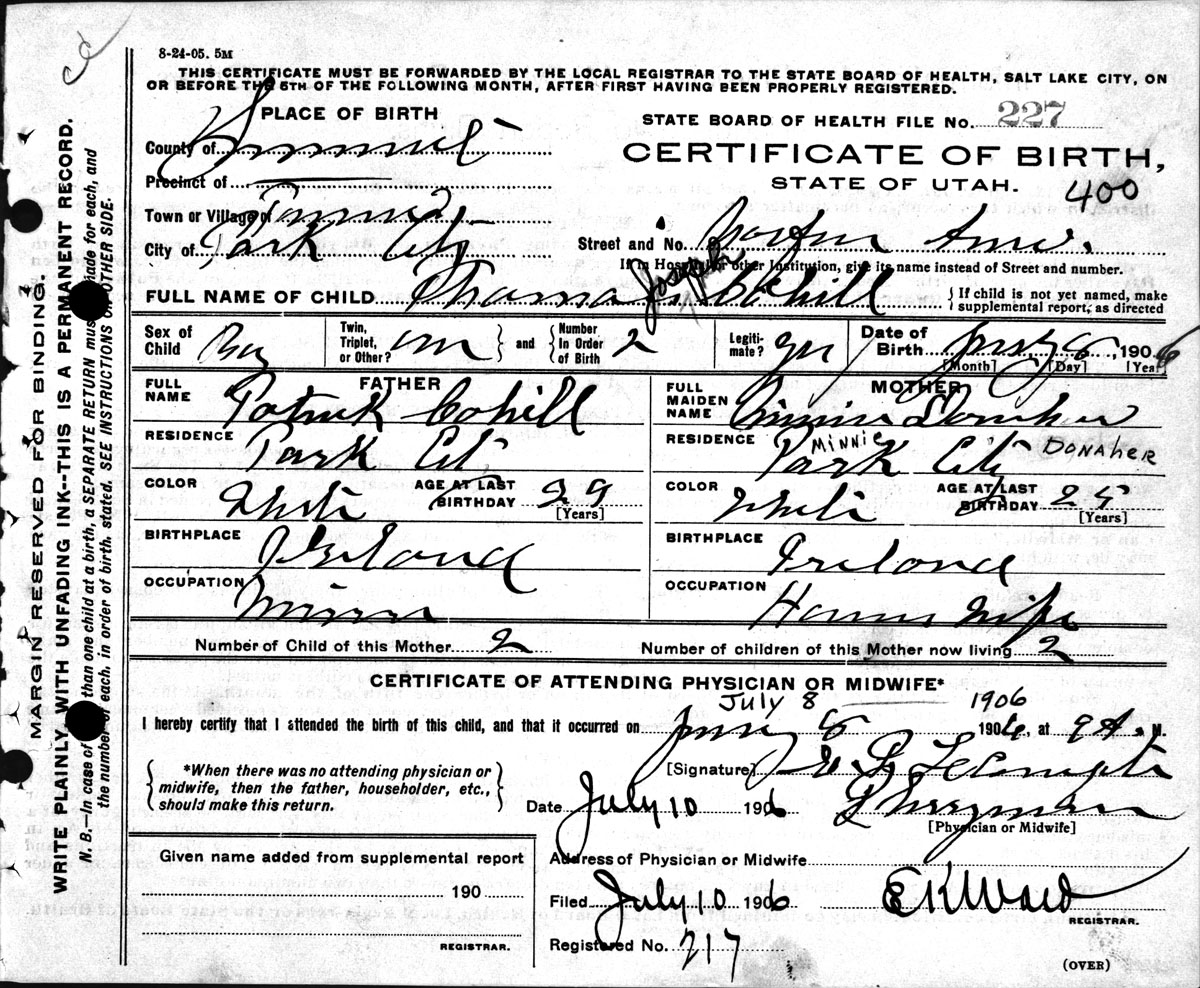 8-24-05. 5M
THIS CERTIFICATE MUST BE FORWARDED BY THE LOCAL REGISTRAR TO THE STATE BOARD OF HEALTH, SALT LAKE CITY, ON
OR BEFORE THE 5TH OF THE FOLLOWING MONTH, AFTER FIRST HAVING BEEN PROPERLY REGISTERED.
PLACE OF BIRTH
STATE BOARD OF HEALTH FILE No. 227
County of Summit
CERTIFICATE OF BIRTH,
Precinct of
STATE OF UTAH. 400
Town or Village of
City of Park City
Street and No. Ave.
If in Hospital or other Institution, give its name instead of Street and number.
FULL NAME OF CHILD Thomas Joseph Cahill { If child is not yet named, make supplemental report, as directed
Sex of Child Boy Twin, Triplet, or Other? } and { Number In Order of Birth 2 Legitimate? yes Date of Birth July 8, 1906
[Month] [Day] [Year]
FATHER
MOTHER
FULL NAME Patrick Cahill
FULL MAIDEN NAME Minnie Donaher
RESIDENCE Park City
RESIDENCE Park City MINNIE DONAHER
COLOR White AGE AT LAST BIRTHDAY 29 [Years]
COLOR White AGE AT LAST BIRTHDAY 25 [Years]
BIRTHPLACE Ireland
BIRTHPLACE Ireland
OCCUPATION Miner
OCCUPATION House Wife
Number of Child of this Mother 2
Number of children of this Mother now living 2
CERTIFICATE OF ATTENDING PHYSICIAN OR MIDWIFE*
July 8 1906
I hereby certify that I attended the birth of this child, and that it occurred on July 8 1906, at 9 A. M.
{ *When there was no attending physician or midwife, then the father, householder, etc., should make this return. }
[Signature] LeCompte
Date July 10 1906
[Physician or Midwife]
Given name added from supplemental report
190
REGISTRAR.
Address of Physician or Midwife
Filed July 10 1906 E K Ward
REGISTRAR.
Registered No. 217
(OVER)
MARGIN RESERVED FOR BINDING.
WRITE PLAINLY, WITH UNFADING INK--THIS IS A PERMANENT RECORD.
N. B.—In case of than one child at a birth, a SEPARATE RETURN must made for each, and
the number of each, in order of birth, stated. SEE INSTRUCTIONS ON OTHER SIDE.